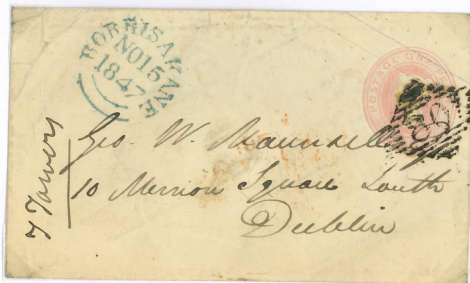 BORRISAKANE
NO 15
1847
POSTAGE ONE
Geo. W. Maunsell
10 Merrion Square South
Dublin